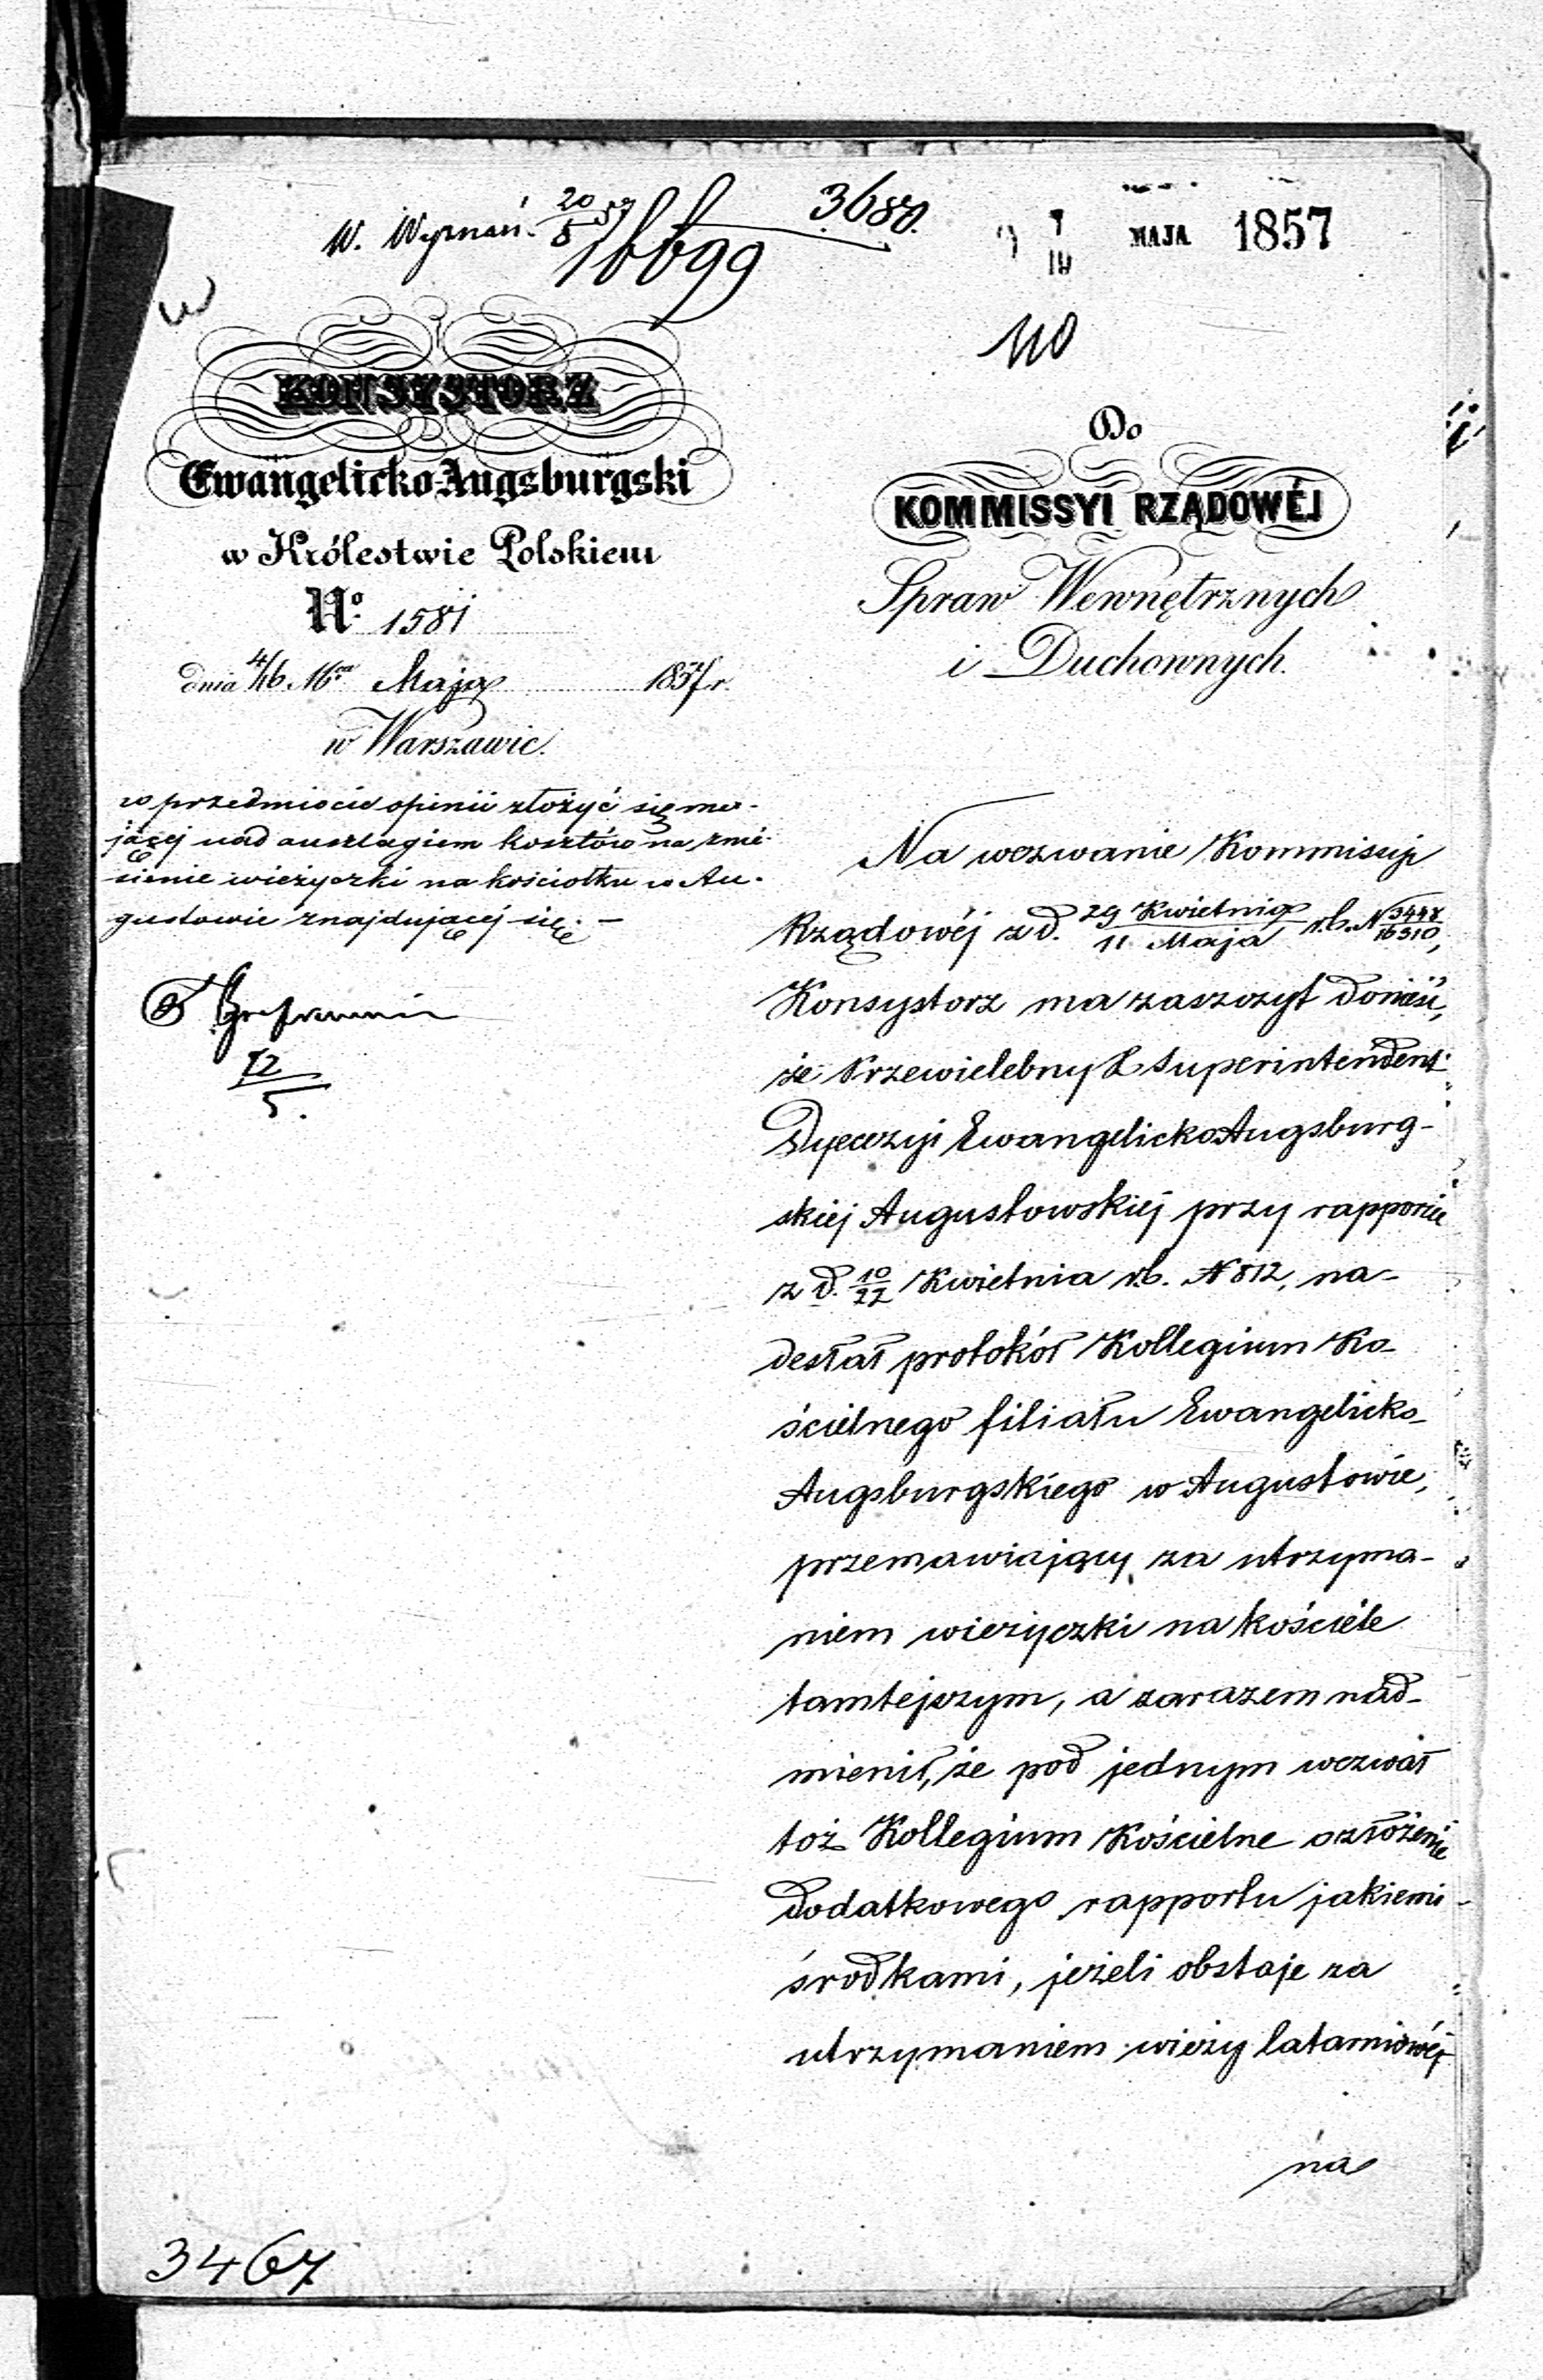 W. Wyznań. 20/5 57
16699
3680.
7
19
MAJA 1857
110
KONSYSTORZ
Ewangelicko-Augsburgski
w Królestwie Polskiem
No. 1581
dnia 4/16 Maja 1857 r.
w Warszawie.
w przedmiocie opinii złożyć się ma-
jącej nad anszlagiem kosztów na znie-
sienie wieżyczki na kościołku w Au-
gustowie znajdującej się. –
12
5.
Do
KOMMISSYI RZĄDOWÉJ
Spraw Wewnętrznych
i Duchownych.
Na wezwanie Kommissyi
Rządowéj z d. 29 Kwietnia / 11 Maja r.b. N 3448/16310,
Konsystorz ma zaszczyt donieść,
że Przewielebny X Superintendent
Dyecezyi Ewangelicko Augsburg-
skiej Augustowskiej przy rapporcie
z d. 10/22 Kwietnia r.b. N 812, na-
desłał protokół Kollegium Ko-
ścielnego filiału Ewangelicko-
Augsburgskiego w Augustowie,
przemawiający za utrzyma-
niem wieżyczki na kościele
tamtejszym, a zarazem nad-
mienił, że pod jednym wezwał
toż Kollegium Kościelne o złożenie
dodatkowego rapportu jakiemi
środkami, jeżeli obstaje za
utrzymaniem wieży latarniowéj
na
3467